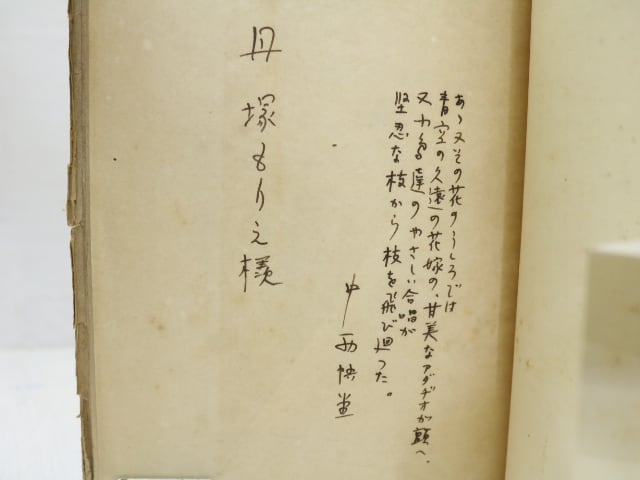 あゝ又その花のうしろでは
青空の久遠の花嫁の、甘美なアダヂオが顫へ、
又小鳥達のやさしい合唱が
堅忍な枝から枝を飛び廻つた。
中西悟堂
丹塚もりえ様